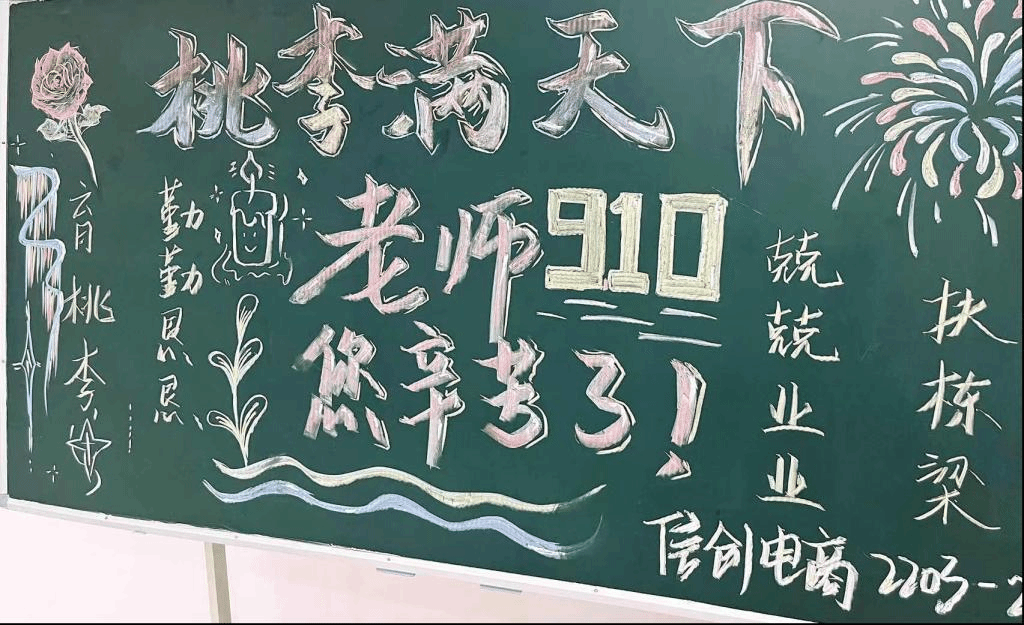 桃李满天下
老师910
您辛苦了！
育桃李
勤勤恳恳
兢兢业业
扶栋梁
信创电商2203-